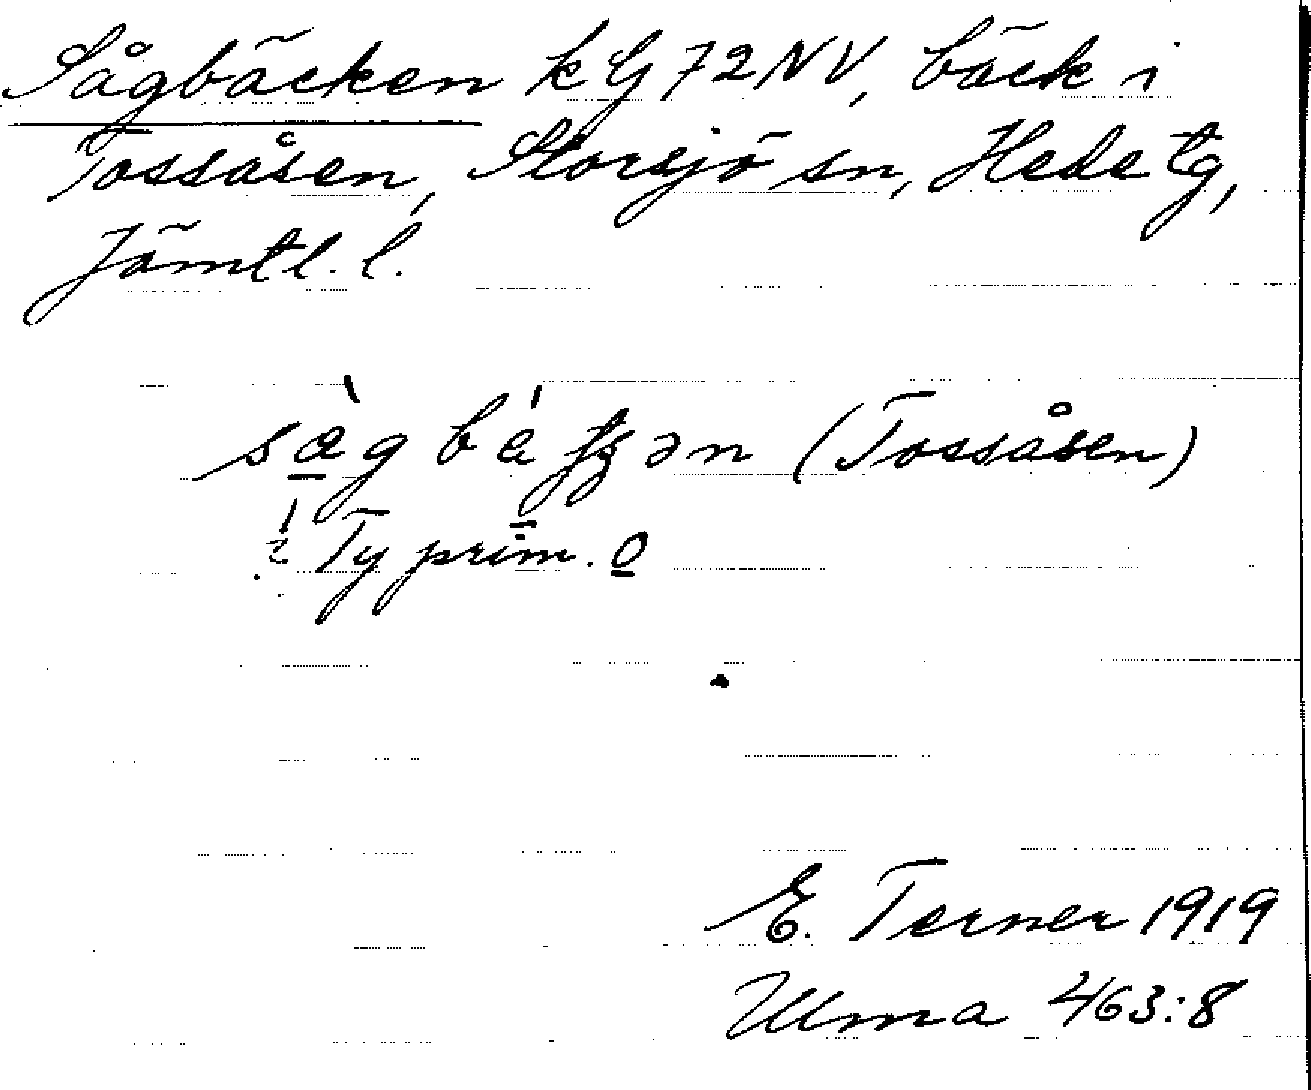 Sågbäcken kG72NV, bäck i
Tossåsen, Storsjö sn, Hede tg,
Jämtl. l.
(Tossåsen)
Ty prim. o
E. Terner 1919
Ulma 463:8